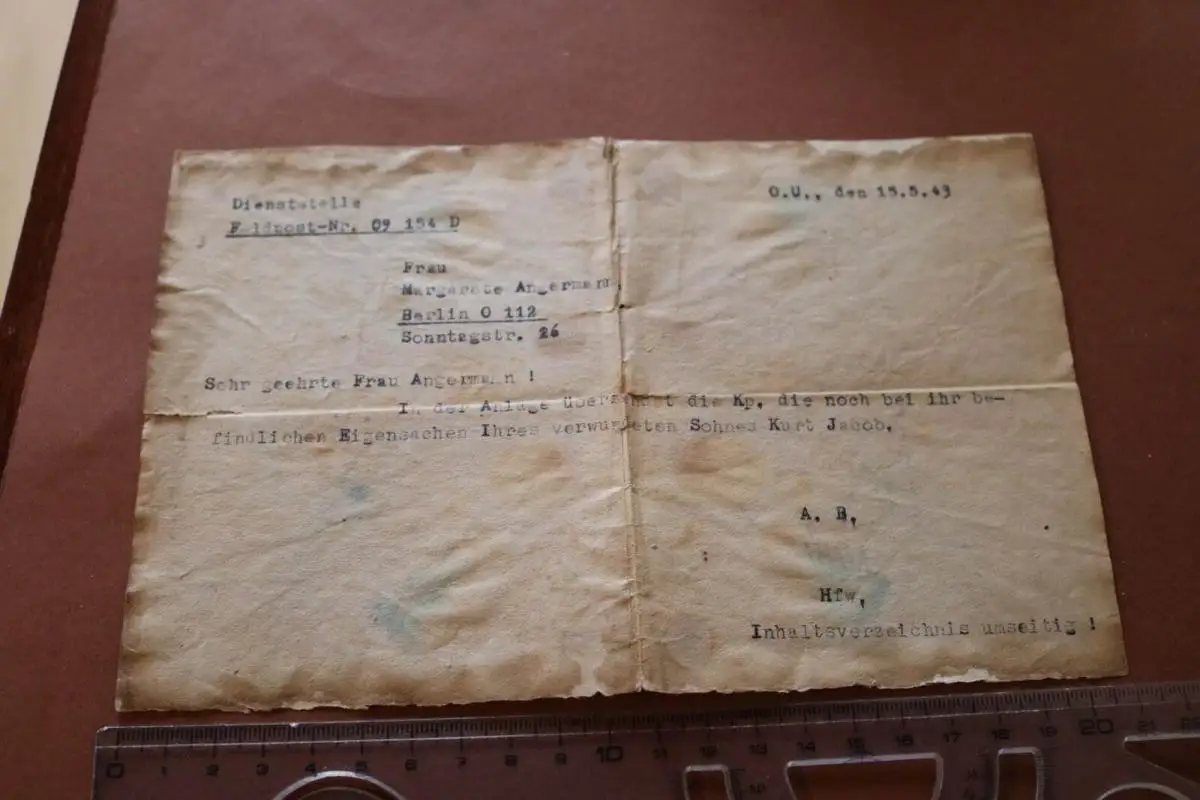 Dienststelle
Feldpost-Nr. 09 154 D
O.U., den 15.5.43
Frau
Margarete Angermann
Berlin O 112
Sonntagstr. 26
Sehr geehrte Frau Angermann !
In der Anlage übersendet die Kp. die noch bei ihr be-
findlichen Eigensachen Ihres verwundeten Sohnes Kurt Jacob.
A. B.
Hfw.
Inhaltsverzeichnis umseitig !
0 1 2 3 4 5 6 7 8 9 10 11 12 13 14 15 16 17 18 19 20 21